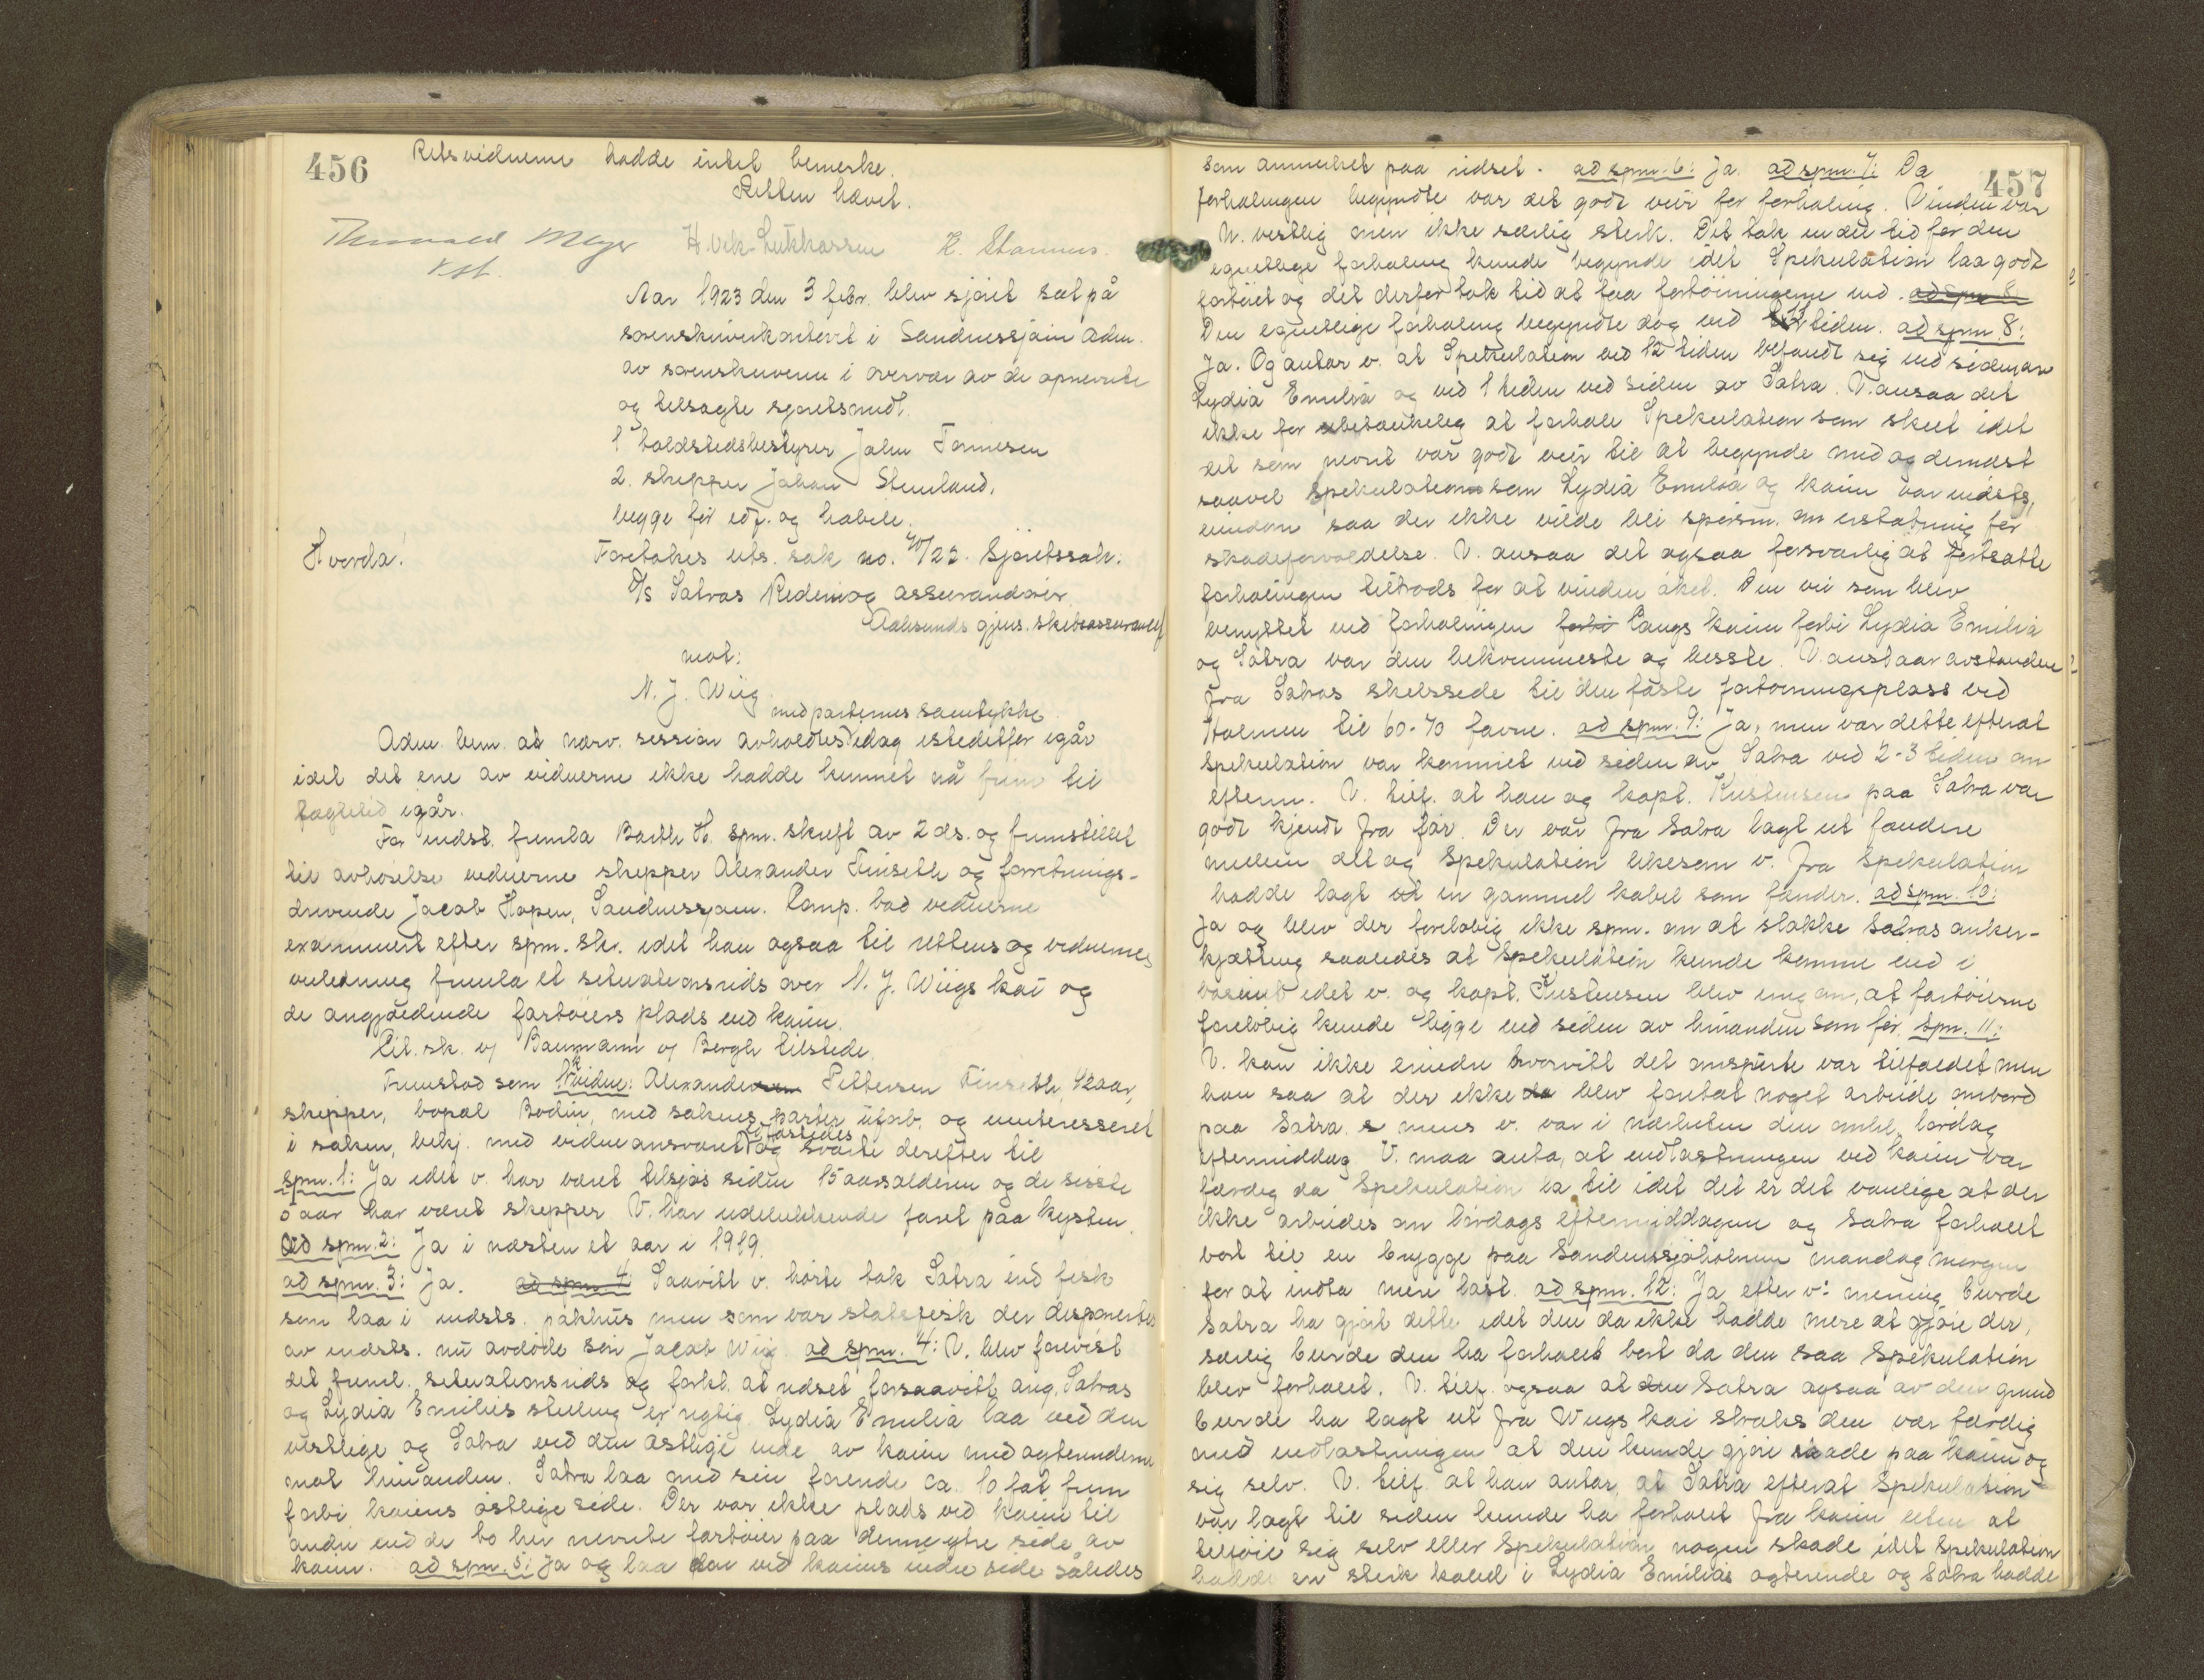 456
Retsvidnerne hadde intet bemerke.
Retten hævet.
Thorvald Meyer H. Vik-Lukkassen K. Stannes.
kst.
Aar 1923 den 3 febr. blev sjøret sat på
sorenskriverkontoret i Sandnessjøen adm.
av sorenskriveren i overvær av de opnevnte
og tilsagte sjøretsmedl.
1 toldstedsbestyrer John Tønnesen
2. skipper Johan Stenland,
begge før edf. og habile.
Hvorda!
Foretokes uts. sak no. 40/22. Sjøretssak:
D/s Satras Rederi og assurandører
Aalesunds gjens. skibsassuranse
mot:
N. J. Wiig
med parternes samtykke
Adm. bem. at nærv. session avholdtes idag istedetfor igår
idet det ene av vidnerne ikke hadde kunnet nå frem til
tægtetid igår.
For indst. fremla Barth H. spm. skrift av 2 ds. og fremstillet
til avhørelse vidnerne skipper Alexander Finseth og forretnings-
drivende Jacob Hopen, Sandnessjøen. Komp. bad vidnerne
examinert efter spm. skr. idet han ogsaa til rettens og vidnernes
veiledning fremla et situationsrids over N. J. Wiigs kai og
de angjældende fartøiers plads ved kaien.
Cit. sk. v/ Baumann v/ Bergh tilstede.
Fremstod som 1ste vidne: Alexander Pettersen Finseth, 42 aar,
skipper, bopæl Bodin, med sakens parter ubesl. og uinteresseret
i saken, bekj. med vidneansvaret edfæstedes og svarte derefter til
spm. 1: Ja idet v. har været tilsjøs siden 15 aarsalderen og de sisste
5 aar har været skipper. V. har udelukkende faret paa kysten.
ad spm. 2: Ja i næsten et aar i 1919.
ad spm. 3: Ja. ad spm. 4 Saavitt v. hørte tok Satra ind fisk
som laa i indsts. pakhus men som var statsfisk der disponertes
av indsts. nu avdøde søn Jacob Wiig. ad spm. 4: V. blev forevist
det freml. situationsrids og forkl. at ridset forsaavitt ang. Satras
og Lydia Emilies stilling er rigtig. Lydia Emilia laa ved den
vestlige og Satra ved den østlige ende av kaien med agterenderne
mot hinanden. Satra laa med sin forende ca. 10 fot frem
forbi kaiens østlige side. Der var ikke plads ved kaien til
andre end de to her nevnte fartøier paa denne ytre side av
kaien. ad spm. 5: Ja og laa den ved kaiens indre side således
457
som anmerket paa ridset. ad spm. 6: Ja. ad spm. 7: Da
forhalingen begyndte var det godt veir for forhaling. Vinden var
N. vestlig men ikke særlig sterk. Det tok en del tid før den
egentlige forhaling kunde begynde idet Spekulation laa godt
fortøiet og det derfor tok tid at faa fortøiningerne ind. ad spm 8
Den egentlige forhaling begyndte dog ved 11 tiden. ad spm. 8:
Ja. Og antar v. at Spekulation ved 12 tiden befandt sig ved siden av
Lydia Emilia og ved 1 tiden ved siden av Satra. V. ansaa det
ikke for ubetænkelig at forhale Spekulation som skeet idet
det som nevnt var godt veir til at begynde med og dernæst
saavel Spekulation som Lydia Emilia og kaien var indsts,
eiendom saa der ikke vilde bli spørsm. om erstatning for
skadeforvoldelse. V. ansaa det ogsaa forsvarlig at fortsætte
forhalingen tiltrods for at vinden øket. Den vei som blev
benyttet ved forhalingen forbi langs kaien forbi Lydia Emilia
og Satra var den bekvemmeste og besste. V. anslaar avstanden
fra Satras skibsside til den faste fortøiningsplass ved
Holmen til 60-70 favne. ad spm. 9: Ja, men var dette efterat
Spekulation var kommet ved siden av Satra ved 2-3 tiden om
efterm. V. tilf. at han og kapt. Kristensen paa Satra var
godt kjendt fra før. Der var fra Satra lagt ut fendere
mellem det og Spekulation likesom v. fra Spekulation
hadde lagt ut en gammel kabel som fender. ad spm. 10:
Ja og blev der foreløbig ikke spm. om at slakke Satras anker-
kjætting saaledes at Spekulation kunde komme ind i
bassinet idet v. og kapt. Kristensen blev enig om, at fartøierne
foreløbig kunde ligge ved siden av hinanden som før. spm. 11:
V. kan ikke erindre hvorvitt det omspurte var tilfældet men
han saa at der ikke da blev foretat noget arbeide ombord
paa Satra mens v. var i nærheten den omh. lørdag
eftermiddag. V. maa anta, at indlastningen ved kaien var
færdig da Spekulation la til idet det er det vanlige at der
ikke arbeides om lørdags eftermiddagene og Satra forhalet
bort til en brygge paa Sandnessjøholmen mandag morgen
for at indta mere last. ad spm. 12: Ja efter v: mening burde
Satra ha gjort dette idet den da ikke hadde mere at gjøre der,
særlig burde den ha forhalet bort da den saa Spekulation
blev forhalet. V. tilf. ogsaa at den Satra ogsaa av den grund
burde ha lagt ut fra Wiigs kai straks den var færdig
med indlastningen at den kunde gjøre skade paa kaien og
sig selv. V. tilf. at han antar, at Satra efterat Spekulation
var lagt til siden kunde ha forhalet fra kaien uten at
tilføie sig selv eller Spekulation nogen skade idet Spekulation
hadde en sterk kabel i Lydia Emilias agterende og Satra hadde